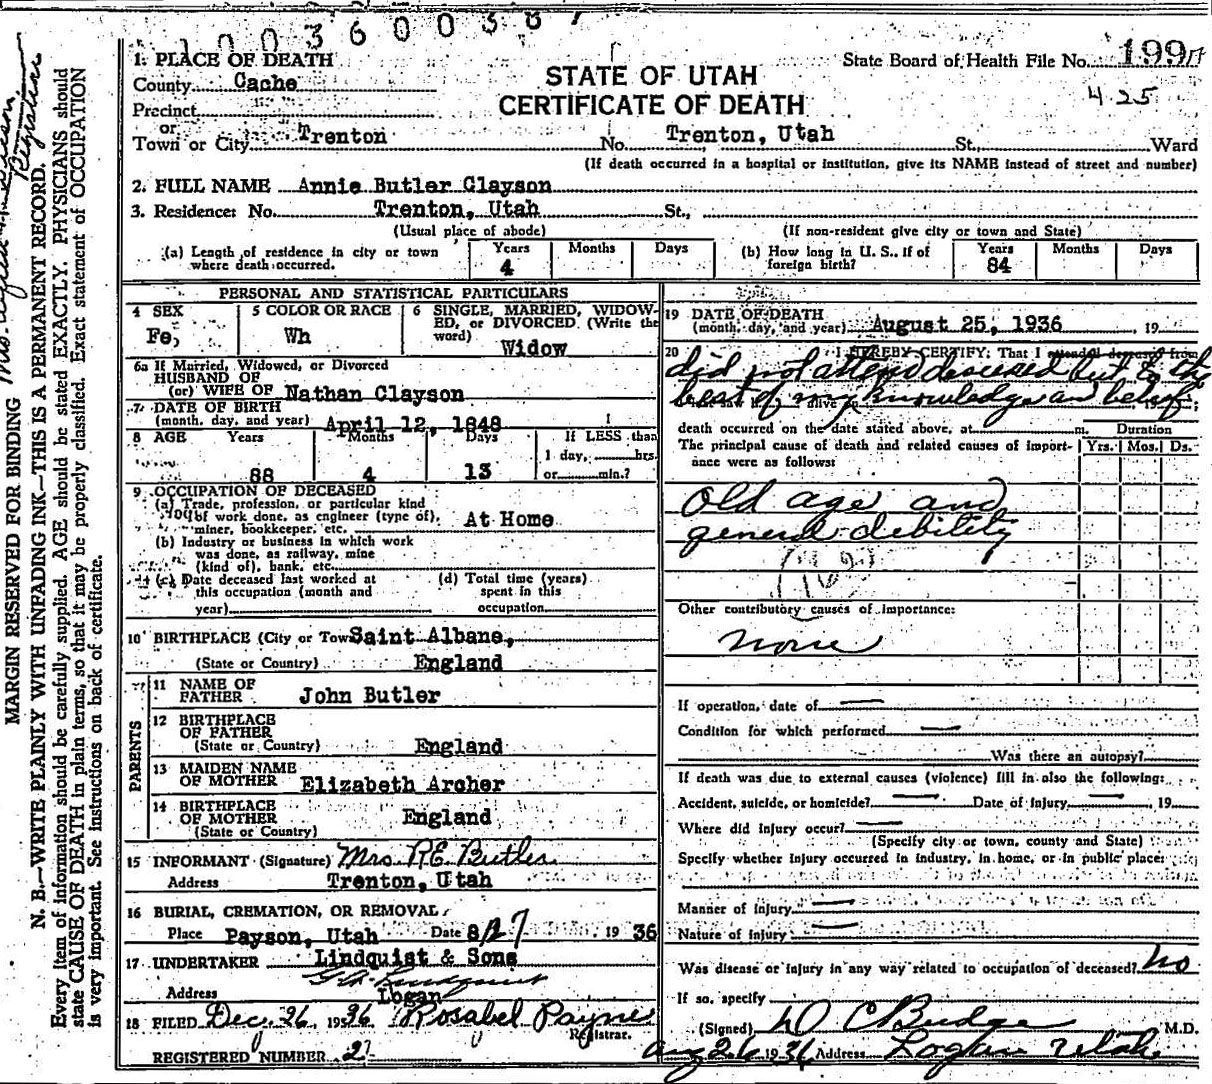 1003600387
1. PLACE OF DEATH
County Cache
Precinct
or
Town or City Trenton
STATE OF UTAH
CERTIFICATE OF DEATH
State Board of Health File No. 199
425
No. Trenton, Utah St., Ward
(If death occurred in a hospital or institution, give its NAME instead of street and number)
2. FULL NAME Annie Butler Clayson
3. Residence: No. Trenton, Utah St.,
(Usual place of abode) (If non-resident give city or town and State)
(a) Length of residence in city or town where death occurred. Years 4 Months Days
(b) How long in U. S., if of foreign birth? Years 84 Months Days
PERSONAL AND STATISTICAL PARTICULARS
4 SEX Fe,
5 COLOR OR RACE Wh
6 SINGLE, MARRIED, WIDOWED, or DIVORCED. (Write the word) Widow
6a If Married, Widowed, or Divorced
HUSBAND OF
(or) WIFE OF Nathan Clayson
7 DATE OF BIRTH
(month, day, and year) April 12, 1848
8 AGE Years 88 Months 4 Days 13
If LESS than
1 day, hrs.
or min.?
9 OCCUPATION OF DECEASED
(a) Trade, profession, or particular kind
of work done, as engineer (type of),
miner, bookkeeper, etc. At Home
(b) Industry or business in which work
was done, as railway, mine
(kind of), bank, etc.
(c) Date deceased last worked at
this occupation (month and
year)
(d) Total time (years)
spent in this
occupation
10 BIRTHPLACE (City or Town) Saint Albane,
(State or Country) England
PARENTS
11 NAME OF FATHER John Butler
12 BIRTHPLACE OF FATHER
(State or Country) England
13 MAIDEN NAME OF MOTHER Elizabeth Archer
14 BIRTHPLACE OF MOTHER England
(State or Country)
15 INFORMANT (Signature) Mrs. R.E. Butler
Address Trenton, Utah
16 BURIAL, CREMATION, OR REMOVAL
Place Payson, Utah Date 8/27 1936
17 UNDERTAKER Lindquist & Sons
Address Logan
18 FILED Dec. 26, 1936 Rosabel Payne
Registrar.
REGISTERED NUMBER 2
19 DATE OF DEATH
(month, day, and year) August 25, 1936, 19
20 I HEREBY CERTIFY: That I attended deceased from
did not attend deceased but to the
best of my knowledge and belief
death occurred on the date stated above, at m. Duration
The principal cause of death and related causes of importance were as follows: Yrs. Mos. Ds.
Old age and
general debility
(162)
Other contributory causes of importance:
none
If operation, date of —
Condition for which performed —
Was there an autopsy?
If death was due to external causes (violence) fill in also the following:
Accident, suicide, or homicide? — Date of injury — 19
Where did injury occur? —
(Specify city or town, county and State)
Specify whether injury occurred in industry, in home, or in public place:
Manner of injury —
Nature of injury —
Was disease or injury in any way related to occupation of deceased? No
If so, specify
(Signed) D C Budge M.D.
Aug 26 1936 Address Logan Utah
MARGIN RESERVED FOR BINDING
N. B.—WRITE PLAINLY WITH UNFADING INK—THIS IS A PERMANENT RECORD.
Every item of information should be carefully supplied. AGE should be stated EXACTLY. PHYSICIANS should
state CAUSE OF DEATH in plain terms, so that it may be properly classified. Exact statement of OCCUPATION
is very important. See instructions on back of certificate.